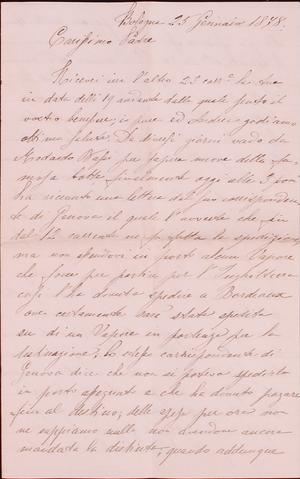 Bologna 25 Gennaio 1878.
Carissimo Padre
Ricevei ieri l'altro 23 corr.e la sua
in data delli 19 andante dalla quale sento il
vostro benessere, io pure ed godiamo
ottima salute. Da diversi giorni vado da
per sapere nuove della fa-
mosa botte finalmente oggi alle 3 pom
ha ricevuto una lettera dal suo corrispondente
di Genova il quale l'avverte che fin
dal 12 corrente fu fatta la spedizione
ma non essendovi in porto alcun Vapore
che fosse per partire per l'Inghilterra
così l'ha dovuta spedire a Bordeaux
ove certamente sarà stata spedita
su di un Vapore in partenza per la
destinazione; lo stesso corrispondente di
Genova dice che non si poteva spedirla
in porto assegnato e che ha dovuto pagare
fino al destino; delle spese per ora non
ne sappiamo nulla non avendone ancora
mandata la distinta, quando addunque